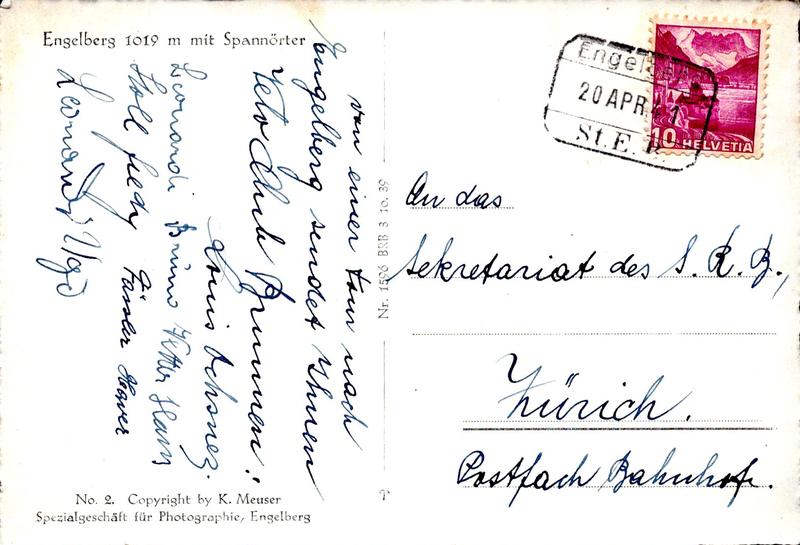 Engelberg 1019 m mit Spannörter
von einer Tour nach
Engelberg sendet Ihnen
Velo Club Brunnen!
Louis
Leonardi Bruno Vetter Hans
Stoll fredy Fässler Xaver
Leonardi Ugo
No. 2. Copyright by K. Meuser
Spezialgeschäft für Photographie, Engelberg
Nr. 1596 BRB 3 10. 39
Engelberg
20 APR 41
St. E. B.
10 HELVETIA
An das
Sekretariat des S. R. B.,
Zürich.
Postfach Bahnhof.